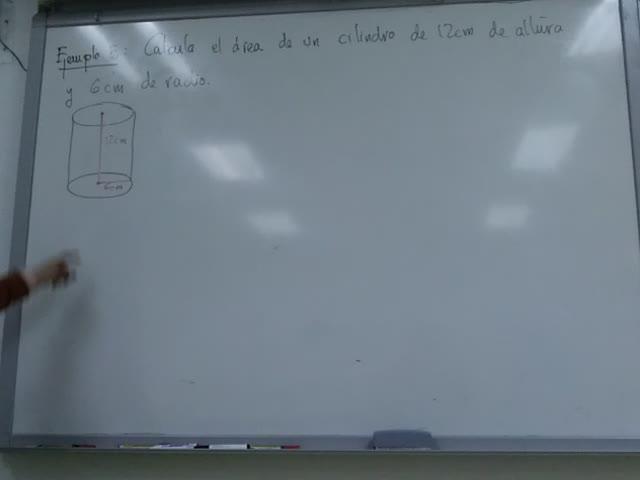 Ejemplo : Calcula el área de un cilindro de 12cm de altura
y 6cm de radio.
12cm
6cm